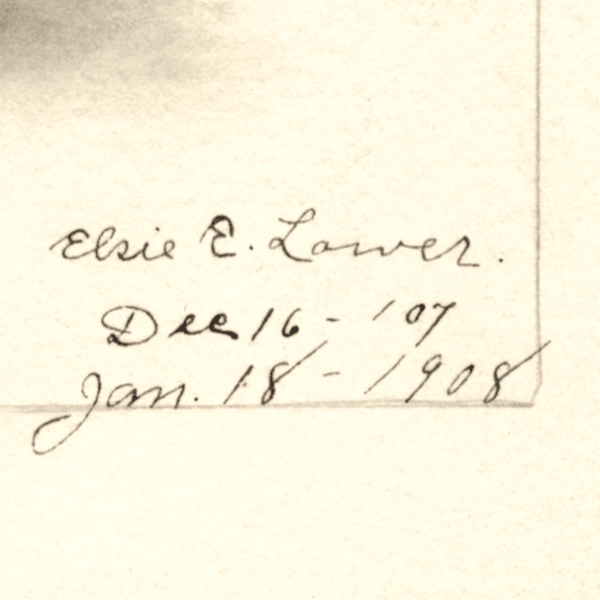 Elsie E. Lower.
Dec 16 - '07
Jan. 18 - 1908